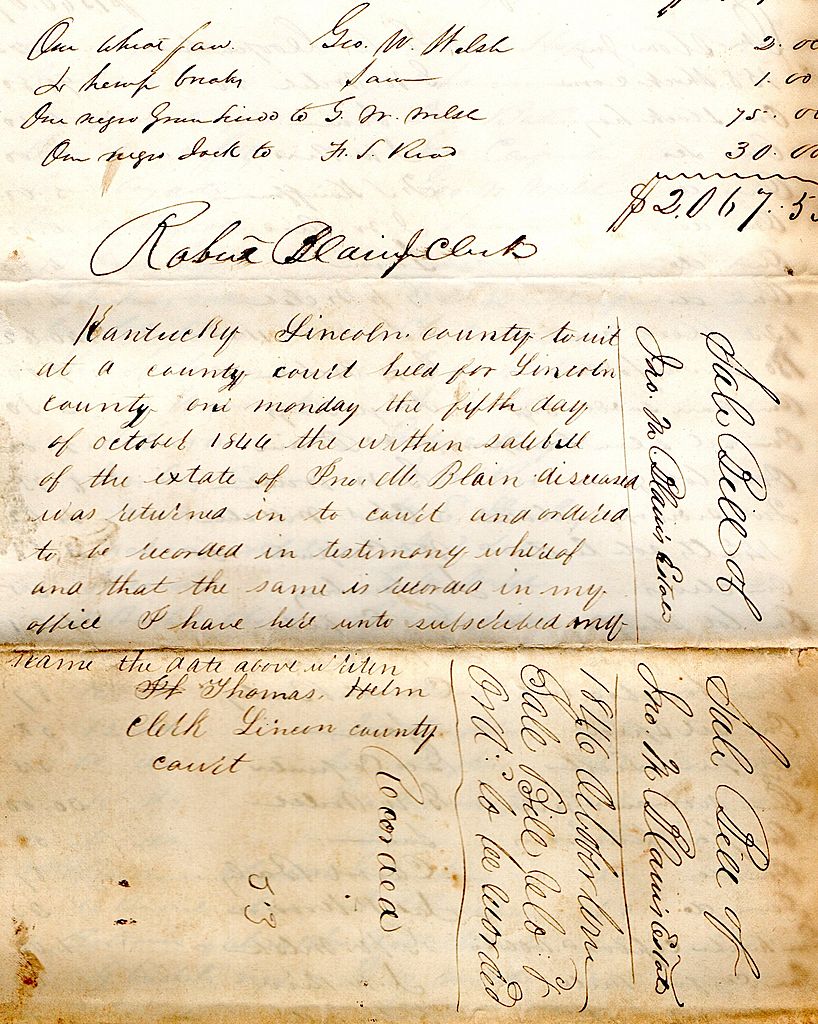 One wheat fan. Geo. W. Welsh 2.00
& hemp braks Sam 1.00
One negro to G. W. Welsh 75.00
One negro Jack to F. S. Read 30.00
$2,067.53
Robert Blain Clerk
Kantucky Lincoln county towit
at a county court held for Lincoln
county one monday the fifth day
of october 1846 the within salebill
of the extate of Jno. M. Blain diseased
was returned in to court and ordered
to be recorded in testimony whereof
and that the same is recorded in my
office I have here unto subscribed my
name the date above writen
Thomas. Helm
Clerk Lincon county
court
Sale Bill of
Jno. M Blain's Estate
Sale Bill of
Jno. M Blain's Estate
1846 October
Sale Bill &
Ord: to be recorded
Recorded
53